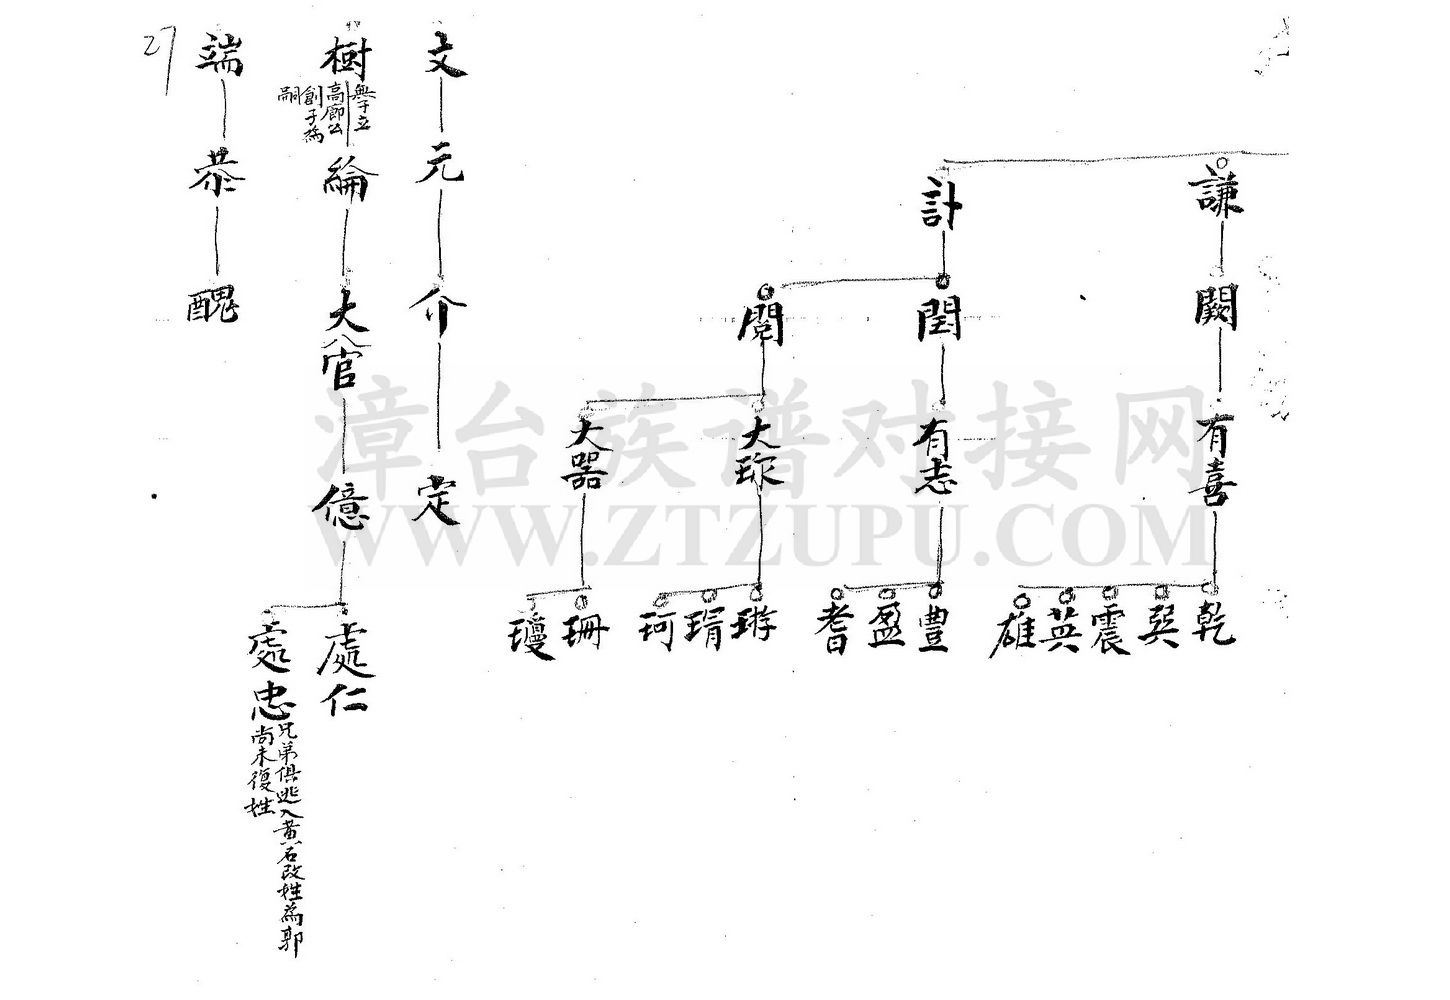 謙
闕
有喜
乾
巽
震
英
雄
計
閏
有志
豊
盈
耆
閱
大琛
璇
琄
珂
大器
珊
瓊
文
元
介
定
樹
無子立
高廊公
創子為
嗣
綸
大官
億
處仁
處忠
兄弟俱逃入黄石改姓為郭
尚未復姓
端
恭
醜
27
漳台族谱对接网
WWW.ZTZUPU.COM